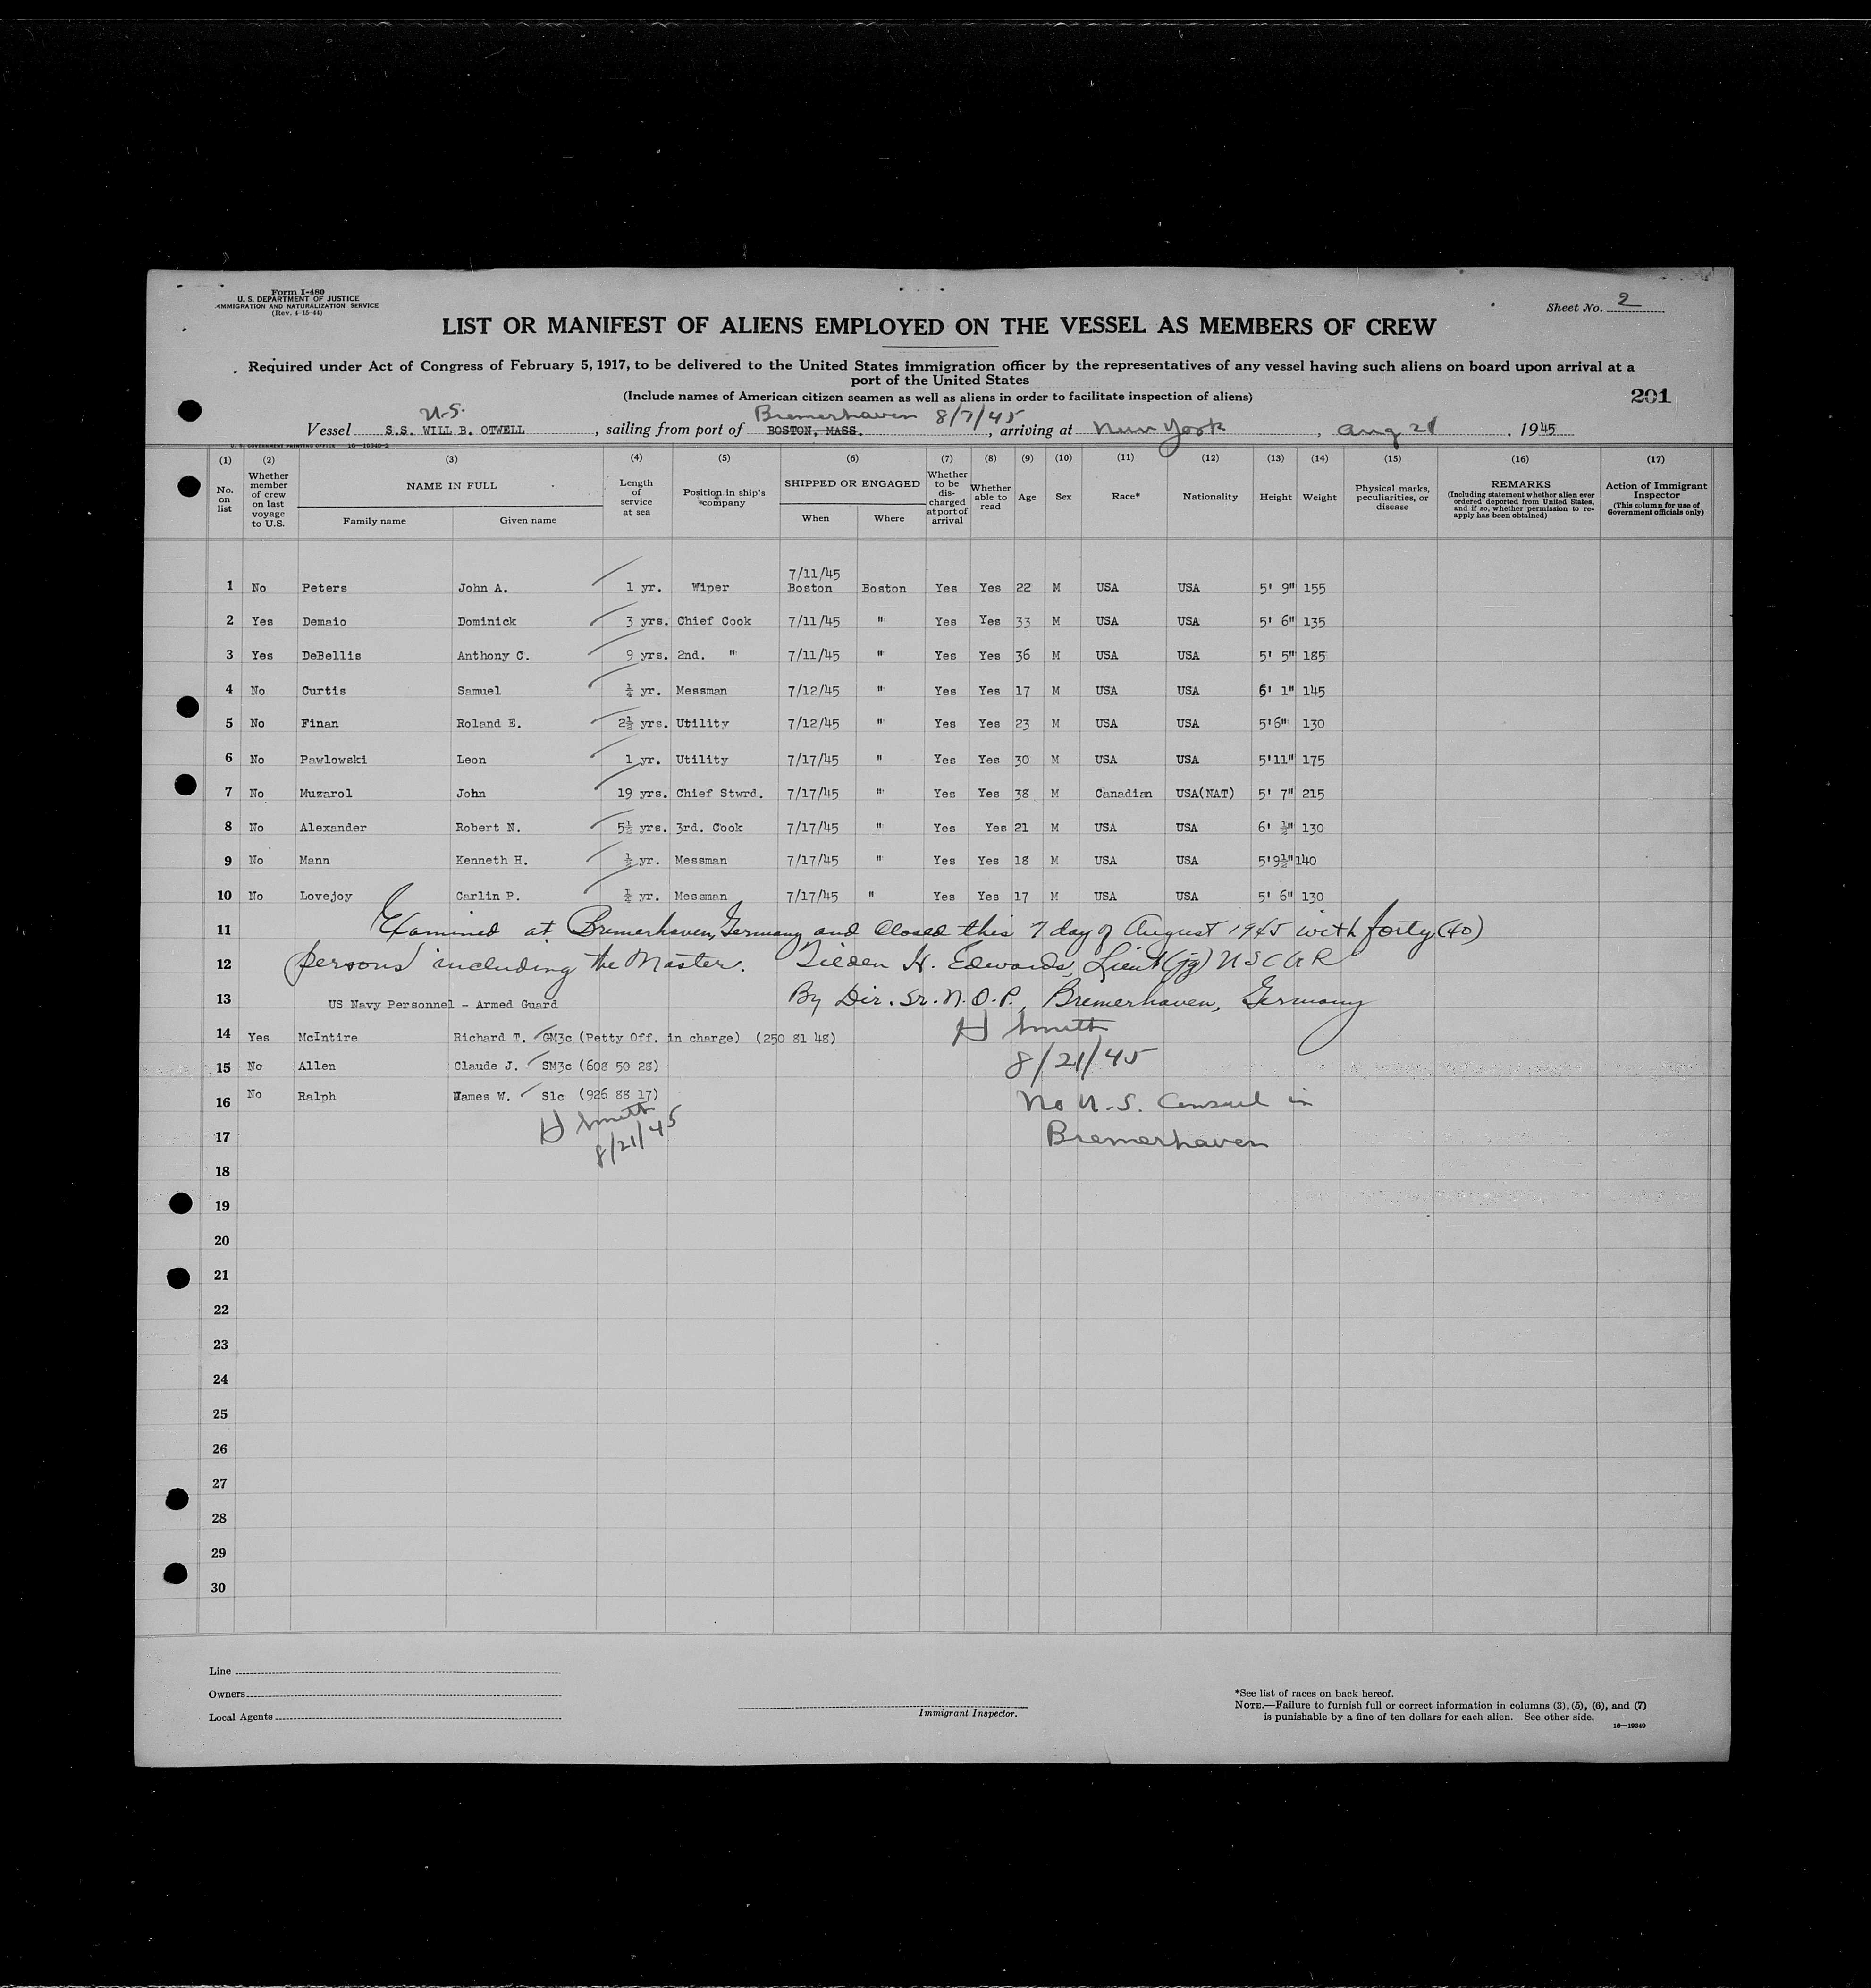 Form I-480
U. S. DEPARTMENT OF JUSTICE
IMMIGRATION AND NATURALIZATION SERVICE
(Rev. 4-15-44)
Sheet No. 2
LIST OR MANIFEST OF ALIENS EMPLOYED ON THE VESSEL AS MEMBERS OF CREW
Required under Act of Congress of February 5, 1917, to be delivered to the United States immigration officer by the representatives of any vessel having such aliens on board upon arrival at a
port of the United States
(Include names of American citizen seamen as well as aliens in order to facilitate inspection of aliens)
201
U.S. Bremerhaven 8/7/45
Vessel S.S. WILL B. OTWELL, sailing from port of BOSTON, MASS., arriving at New York, Aug 21, 1945
U. S. GOVERNMENT PRINTING OFFICE 16—19349-2
(1) (2) (3) (4) (5) (6) (7) (8) (9) (10) (11) (12) (13) (14) (15) (16) (17)
No. on list
Whether member of crew on last voyage to U.S.
NAME IN FULL
Family name
Given name
Length of service at sea
Position in ship's company
SHIPPED OR ENGAGED
When
Where
Whether to be discharged at port of arrival
Whether able to read
Age
Sex
Race*
Nationality
Height
Weight
Physical marks, peculiarities, or disease
REMARKS
(Including statement whether alien ever ordered deported from United States, and if so, whether permission to re-apply has been obtained)
Action of Immigrant Inspector
(This column for use of Government officials only)
7/11/45
1 No Peters John A. 1 yr. Wiper Boston Boston Yes Yes 22 M USA USA 5' 9" 155
2 Yes Demaio Dominick 3 yrs. Chief Cook 7/11/45 " Yes Yes 33 M USA USA 5' 6" 135
3 Yes DeBellis Anthony C. 9 yrs. 2nd. " 7/11/45 " Yes Yes 36 M USA USA 5' 5" 185
4 No Curtis Samuel yr. Messman 7/12/45 " Yes Yes 17 M USA USA 6' 1" 145
5 No Finan Roland E. 2½ yrs. Utility 7/12/45 " Yes Yes 23 M USA USA 5'6" 130
6 No Pawlowski Leon 1 yr. Utility 7/17/45 " Yes Yes 30 M USA USA 5'11" 175
7 No Muzarol John 19 yrs. Chief Stwrd. 7/17/45 " Yes Yes 38 M Canadian USA(NAT) 5' 7" 215
8 No Alexander Robert N. 5½ yrs. 3rd. Cook 7/17/45 " Yes Yes 21 M USA USA 6' ½" 130
9 No Mann Kenneth H. ½ yr. Messman 7/17/45 " Yes Yes 18 M USA USA 5'9½" 140
10 No Lovejoy Carlin P. yr. Messman 7/17/45 " Yes Yes 17 M USA USA 5' 6" 130
11 Examined at Bremerhaven, Germany and closed this 7 day of August 1945 with forty (40)
12 persons including the Master. Tilden H. Edwards, Lieut (jg) USCGR
13 US Navy Personnel - Armed Guard By Dir. Sr. N.O.P., Bremerhaven, Germany
14 Yes McIntire Richard T. GM3c (Petty Off. in charge) (250 81 48) H Smith
15 No Allen Claude J. SM3c (608 50 28) 8/21/45
16 No Ralph James W. S1c (926 88 17) No U.S. Consul in
H Smith
17 Bremerhaven
8/21/45
18
19
20
21
22
23
24
25
26
27
28
29
30
Line
Owners
Local Agents
Immigrant Inspector.
*See list of races on back hereof.
NOTE.—Failure to furnish full or correct information in columns (3), (5), (6), and (7)
is punishable by a fine of ten dollars for each alien. See other side.
16—19349